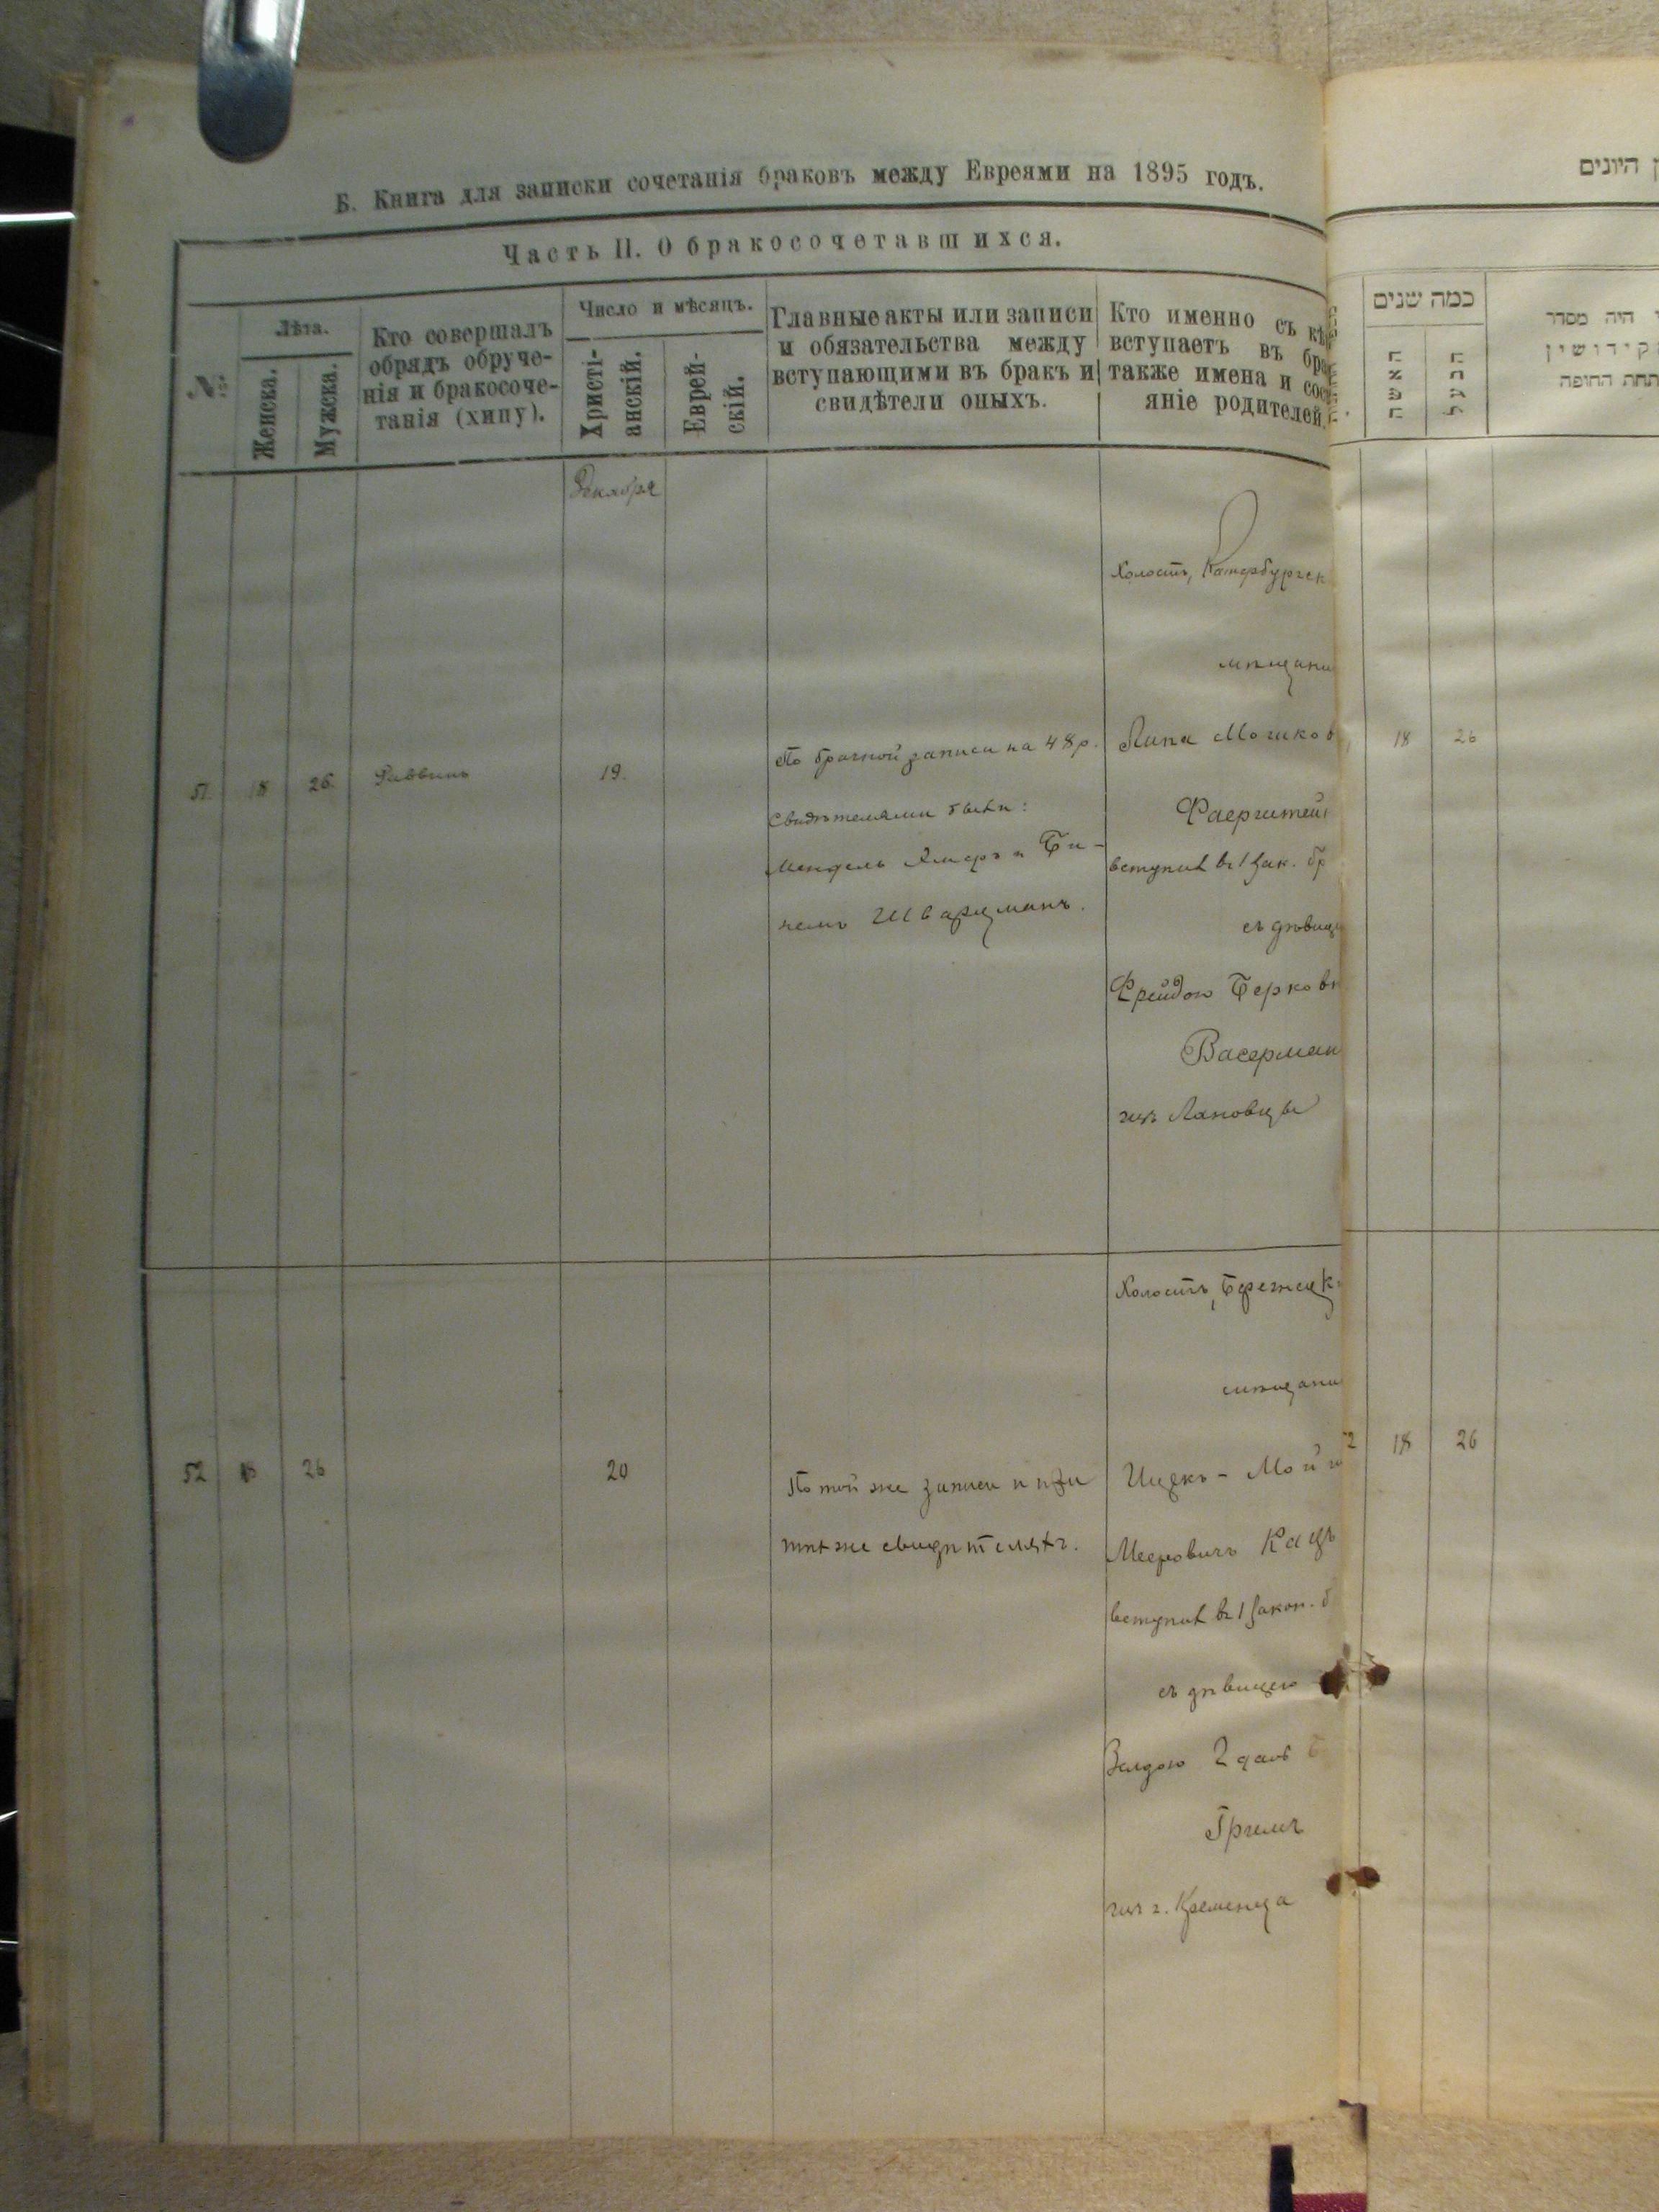 Б. Книга для записки сочетанія браковъ между Евреями на 1895 годъ.
Часть II. О бракосочетавшихся.
№
Лѣта.
Женска.
Мужска.
Кто совершалъ
обрядъ обруче-
нія и бракосоче-
танія (хипу).
Число и мѣсяцъ.
Христі-
анскій.
Еврей-
скій.
Главные акты или записи
и обязательства между
вступающими въ бракъ и
свидѣтели оныхъ.
Кто именно съ кѣ
вступаетъ въ бра
также имена и сос
яніе родителей.
Декабря
51 18 26 Раввинъ 19.
По брачной записи на 48 р.
Свидѣтелями были:
Мендель и Би-
немъ Шварцманъ.
Холостъ, Катербургск
мѣщани
Липа Мошков
Фаерштей
вступил въ 1 зак. бр
съ дѣвице
Фрейдою Берков
Васерман
изъ Лановцы
52 18 26 20
По той же записи и при
тѣх же свидѣтеляхъ.
Холостъ, Бережецк
мѣщани
Ицекъ-Мой
Мееровичъ Кацъ
вступил въ 1 закон. б
съ дѣвицею
изъ г. Кременца
ן היונים
כמה שנים
האשה
הבעל
היה מסדר
קידושין
תחת החופה
18 26
2 18 26